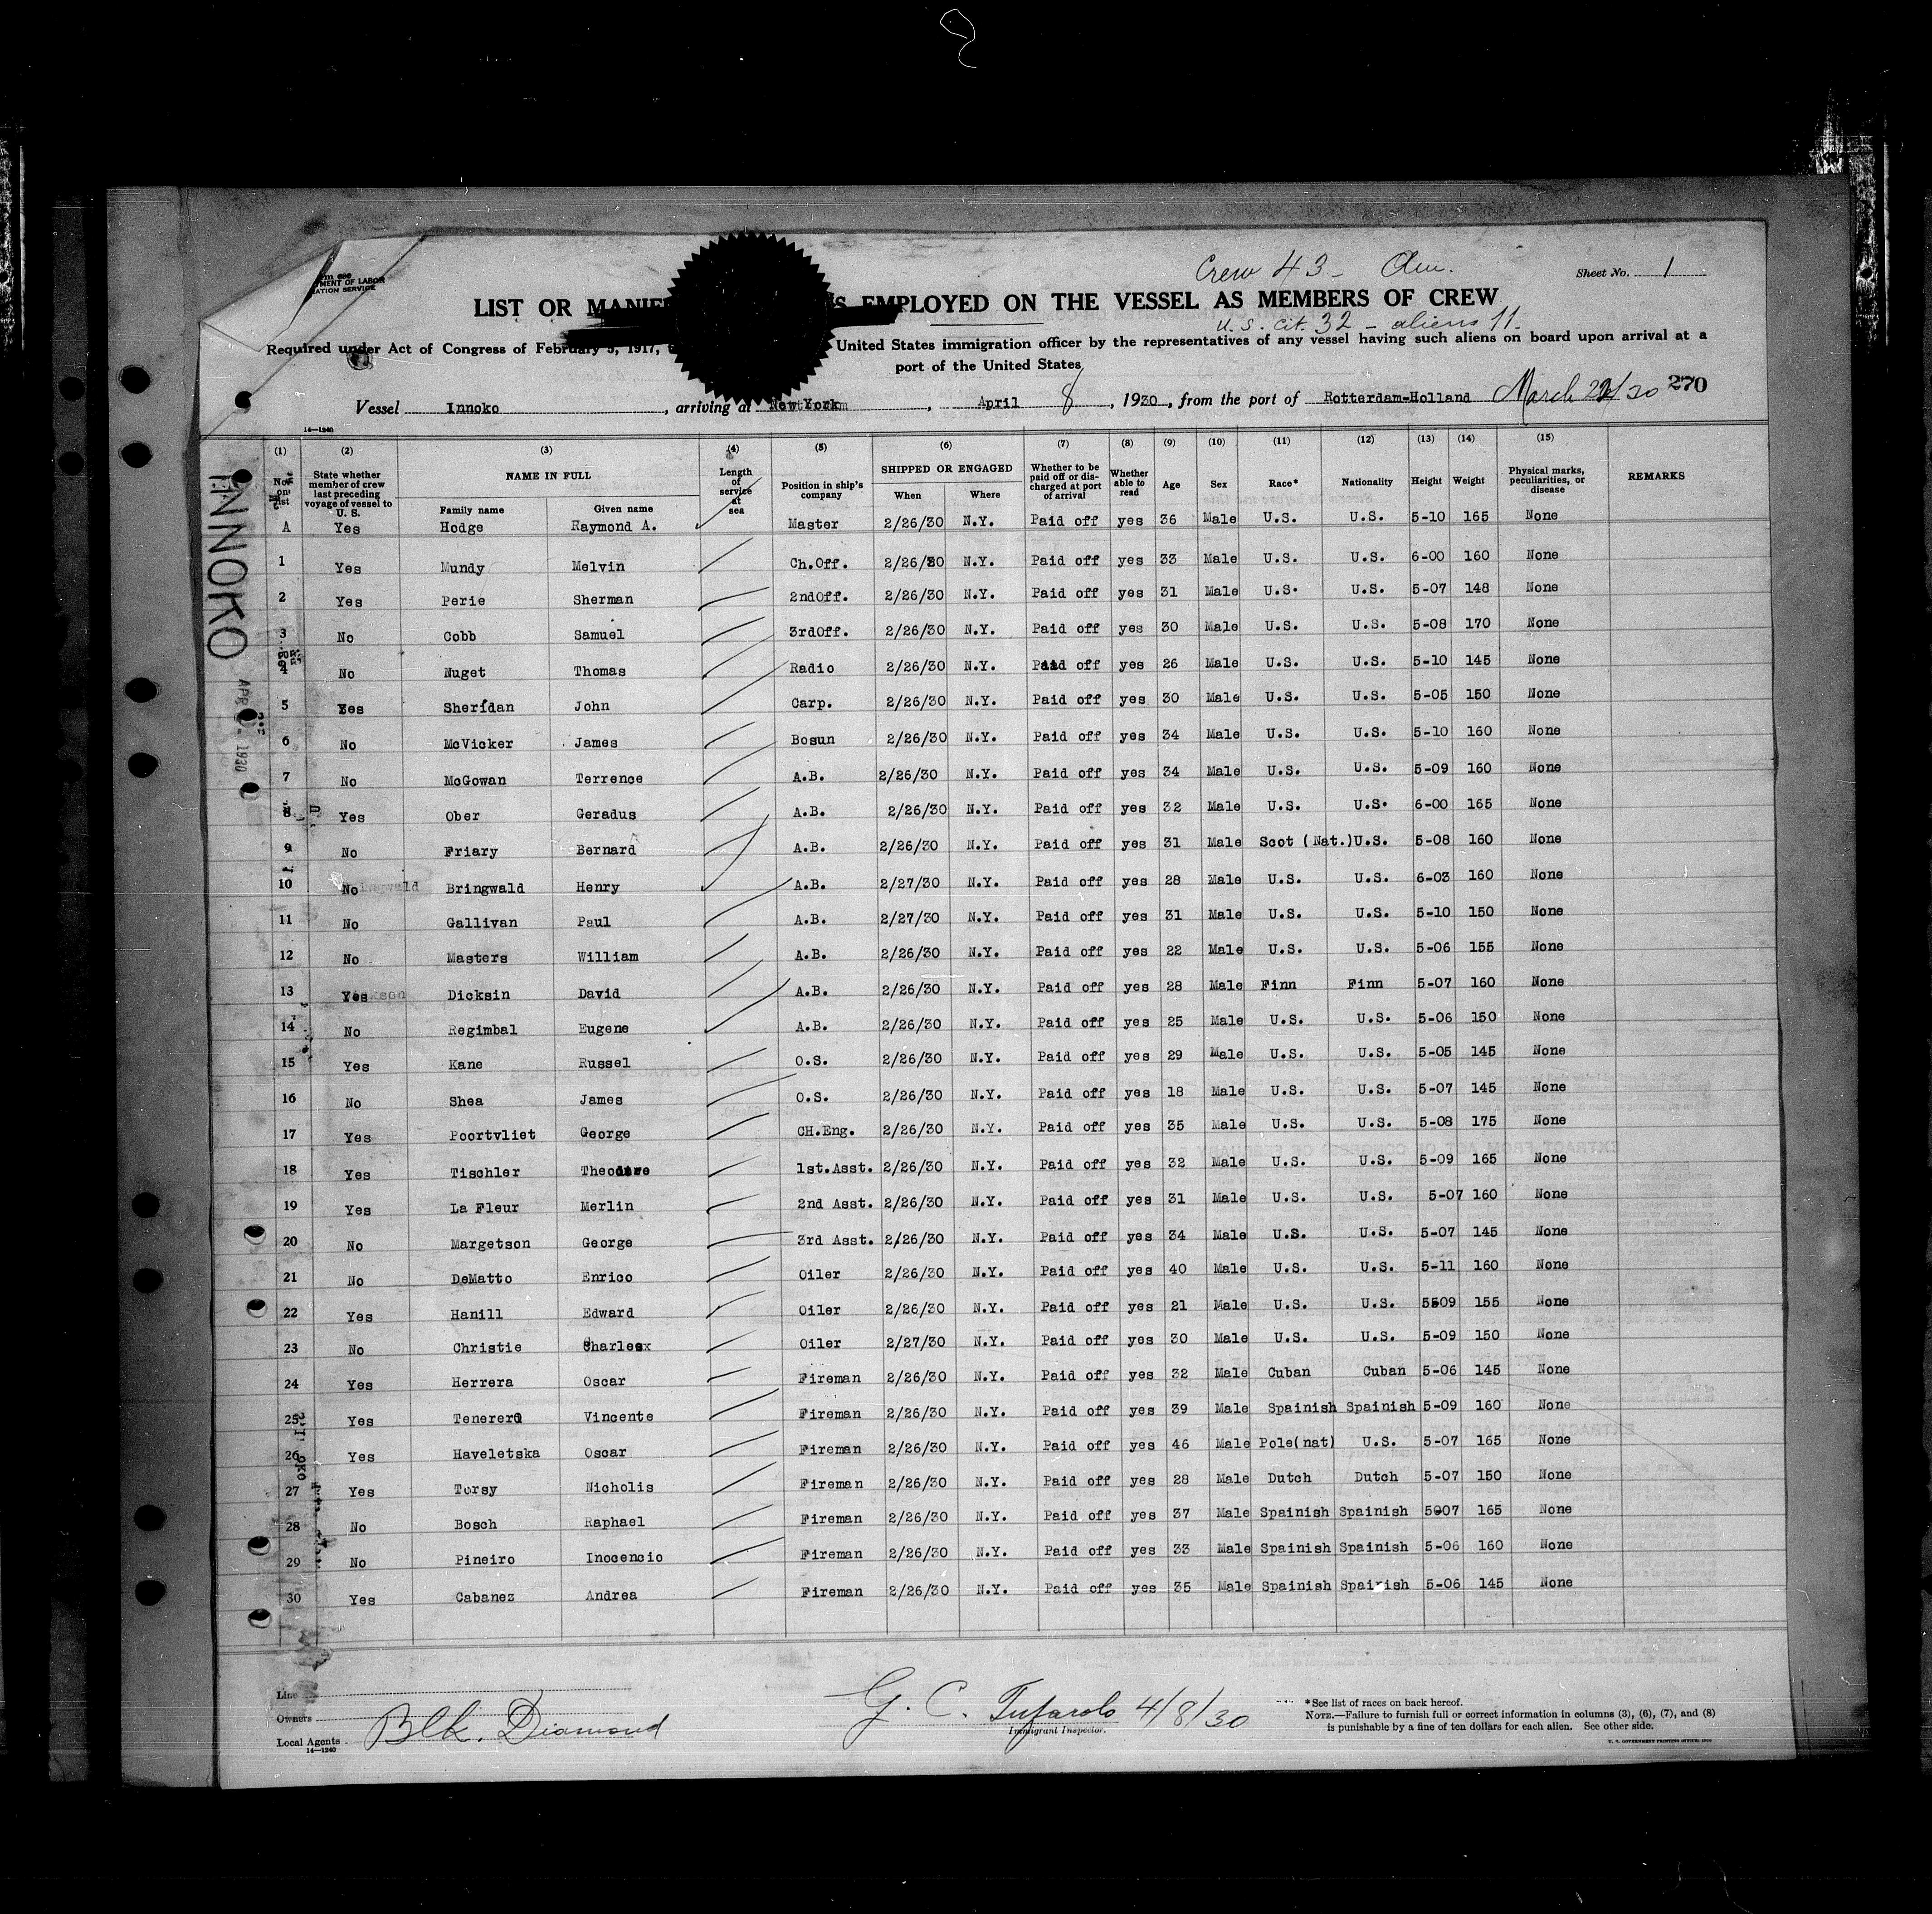 Crew 43 - Am.
Sheet No. 1
MENT OF LABOR
LIST OR MANIFE EMPLOYED ON THE VESSEL AS MEMBERS OF CREW
U.S. cit. 32 - aliens 11-
Required under Act of Congress of February 5, 1917, United States immigration officer by the representatives of any vessel having such aliens on board upon arrival at a
port of the United States
Vessel Innoko, arriving at New York, April 8, 1930, from the port of Rotterdam-Holland March 22/30 270
14—1240
(1) (2) (3) (4) (5) (6) (7) (8) (9) (10) (11) (12) (13) (14) (15)
No. on list State whether member of crew last preceding voyage of vessel to U. S. NAME IN FULL Family name Given name Length of service at sea Position in ship's company SHIPPED OR ENGAGED When Where Whether to be paid off or discharged at port of arrival Whether able to read Age Sex Race* Nationality Height Weight Physical marks, peculiarities, or disease REMARKS
A Yes Hodge Raymond A. Master 2/26/30 N.Y. Paid off yes 36 Male U.S. U.S. 5-10 165 None
1 Yes Mundy Melvin Ch.Off. 2/26/30 N.Y. Paid off yes 33 Male U.S. U.S. 6-00 160 None
2 Yes Perie Sherman 2ndOff. 2/26/30 N.Y. Paid off yes 31 Male U.S. U.S. 5-07 148 None
3 No Cobb Samuel 3rdOff. 2/26/30 N.Y. Paid off yes 30 Male U.S. U.S. 5-08 170 None
4 No Nuget Thomas Radio 2/26/30 N.Y. Paid off yes 26 Male U.S. U.S. 5-10 145 None
5 Yes Sheridan John Carp. 2/26/30 N.Y. Paid off yes 30 Male U.S. U.S. 5-05 150 None
6 No McVicker James Bosun 2/26/30 N.Y. Paid off yes 34 Male U.S. U.S. 5-10 160 None
7 No McGowan Terrence A.B. 2/26/30 N.Y. Paid off yes 34 Male U.S. U.S. 5-09 160 None
8 Yes Ober Geradus A.B. 2/26/30 N.Y. Paid off yes 32 Male U.S. U.S. 6-00 165 None
9 No Friary Bernard A.B. 2/26/30 N.Y. Paid off yes 31 Male Scot (Nat.) U.S. 5-08 160 None
10 No Bringwald Henry A.B. 2/27/30 N.Y. Paid off yes 28 Male U.S. U.S. 6-03 160 None
11 No Gallivan Paul A.B. 2/27/30 N.Y. Paid off yes 31 Male U.S. U.S. 5-10 150 None
12 No Masters William A.B. 2/26/30 N.Y. Paid off yes 22 Male U.S. U.S. 5-06 155 None
13 Yes Dicksin David A.B. 2/26/30 N.Y. Paid off yes 28 Male Finn Finn 5-07 160 None
14 No Regimbal Eugene A.B. 2/26/30 N.Y. Paid off yes 25 Male U.S. U.S. 5-06 150 None
15 Yes Kane Russel O.S. 2/26/30 N.Y. Paid off yes 29 Male U.S. U.S. 5-05 145 None
16 No Shea James O.S. 2/26/30 N.Y. Paid off yes 18 Male U.S. U.S. 5-07 145 None
17 Yes Poortvliet George CH.Eng. 2/26/30 N.Y. Paid off yes 35 Male U.S. U.S. 5-08 175 None
18 Yes Tischler Theodore 1st.Asst. 2/26/30 N.Y. Paid off yes 32 Male U.S. U.S. 5-09 165 None
19 Yes La Fleur Merlin 2nd Asst. 2/26/30 N.Y. Paid off yes 31 Male U.S. U.S. 5-07 160 None
20 No Margetson George 3rd Asst. 2/26/30 N.Y. Paid off yes 34 Male U.S. U.S. 5-07 145 None
21 No DeMatto Enrico Oiler 2/26/30 N.Y. Paid off yes 40 Male U.S. U.S. 5-11 160 None
22 Yes Hanill Edward Oiler 2/26/30 N.Y. Paid off yes 21 Male U.S. U.S. 5509 155 None
23 No Christie Charlesx Oiler 2/27/30 N.Y. Paid off yes 30 Male U.S. U.S. 5-09 150 None
24 Yes Herrera Oscar Fireman 2/26/30 N.Y. Paid off yes 32 Male Cuban Cuban 5-06 145 None
25 Yes Tenerero Vincente Fireman 2/26/30 N.Y. Paid off yes 39 Male Spainish Spainish 5-09 160 None
26 Yes Haveletska Oscar Fireman 2/26/30 N.Y. Paid off yes 46 Male Pole(nat) U.S. 5-07 165 None
27 Yes Torsy Nicholis Fireman 2/26/30 N.Y. Paid off yes 28 Male Dutch Dutch 5-07 150 None
28 No Bosch Raphael Fireman 2/26/30 N.Y. Paid off yes 37 Male Spainish Spainish 5007 165 None
29 No Pineiro Inocencio Fireman 2/26/30 N.Y. Paid off yes 33 Male Spainish Spainish 5-06 160 None
30 Yes Cabanez Andrea Fireman 2/26/30 N.Y. Paid off yes 35 Male Spainish Spainish 5-06 145 None
INNOKO
APR 1930
Line
Owners
Local Agents
Blk. Diamond
14—1240
G. C. Tufarolo 4/8/30
Immigrant Inspector.
*See list of races on back hereof.
NOTE.—Failure to furnish full or correct information in columns (3), (6), (7), and (8)
is punishable by a fine of ten dollars for each alien. See other side.